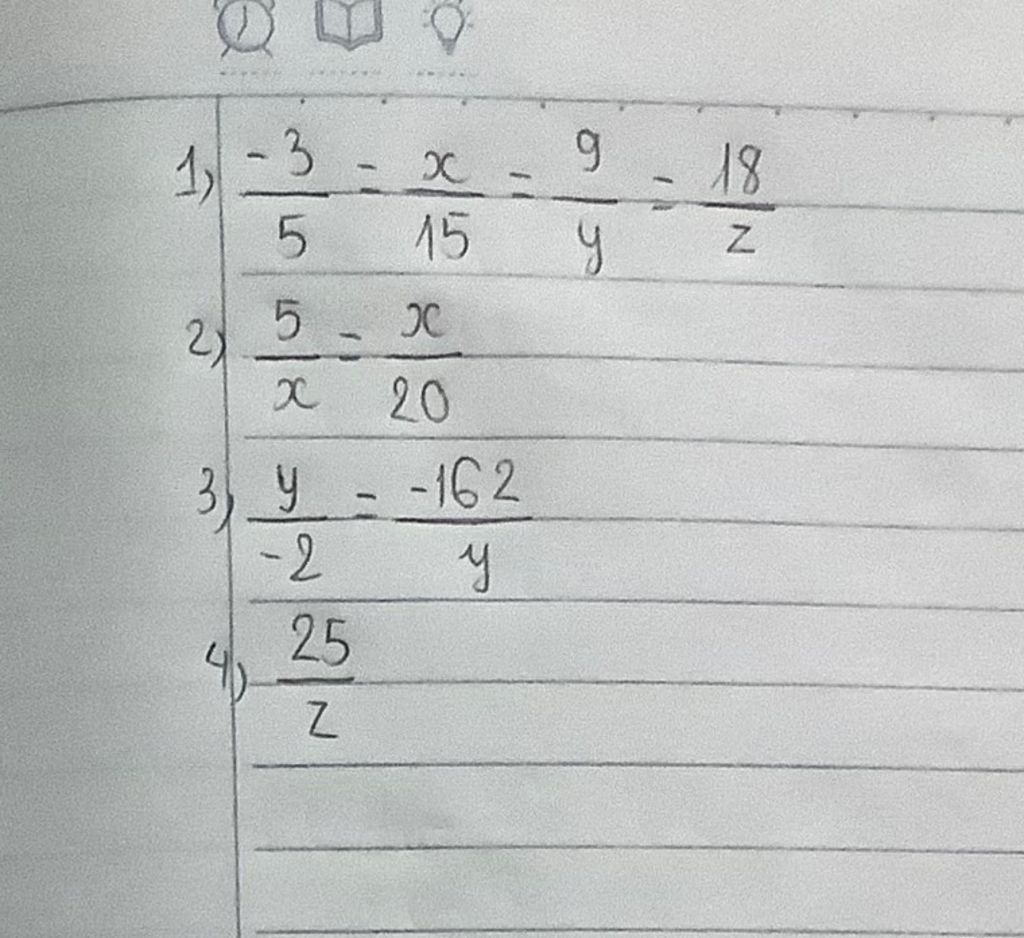 1) -3/5 = x/15 = 9/y = 18/z
2) 5/x = x/20
3) y/-2 = -162/y
4) 25/z